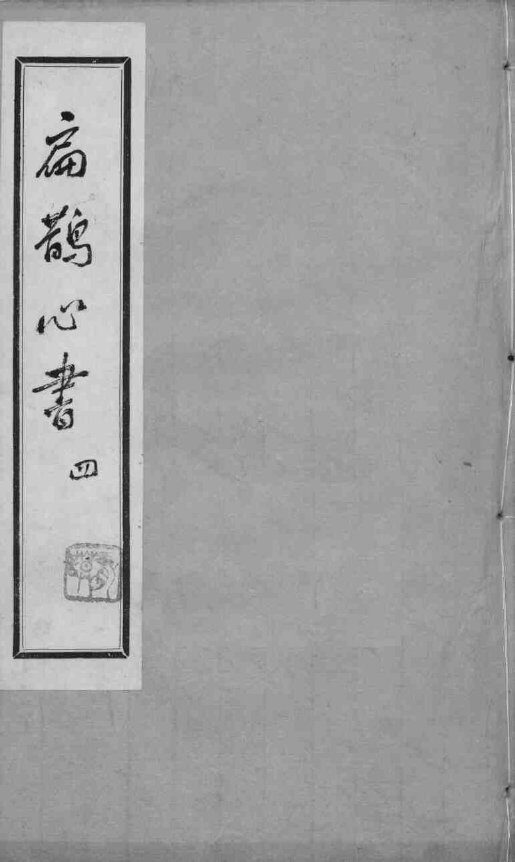 扁鵲心書
四